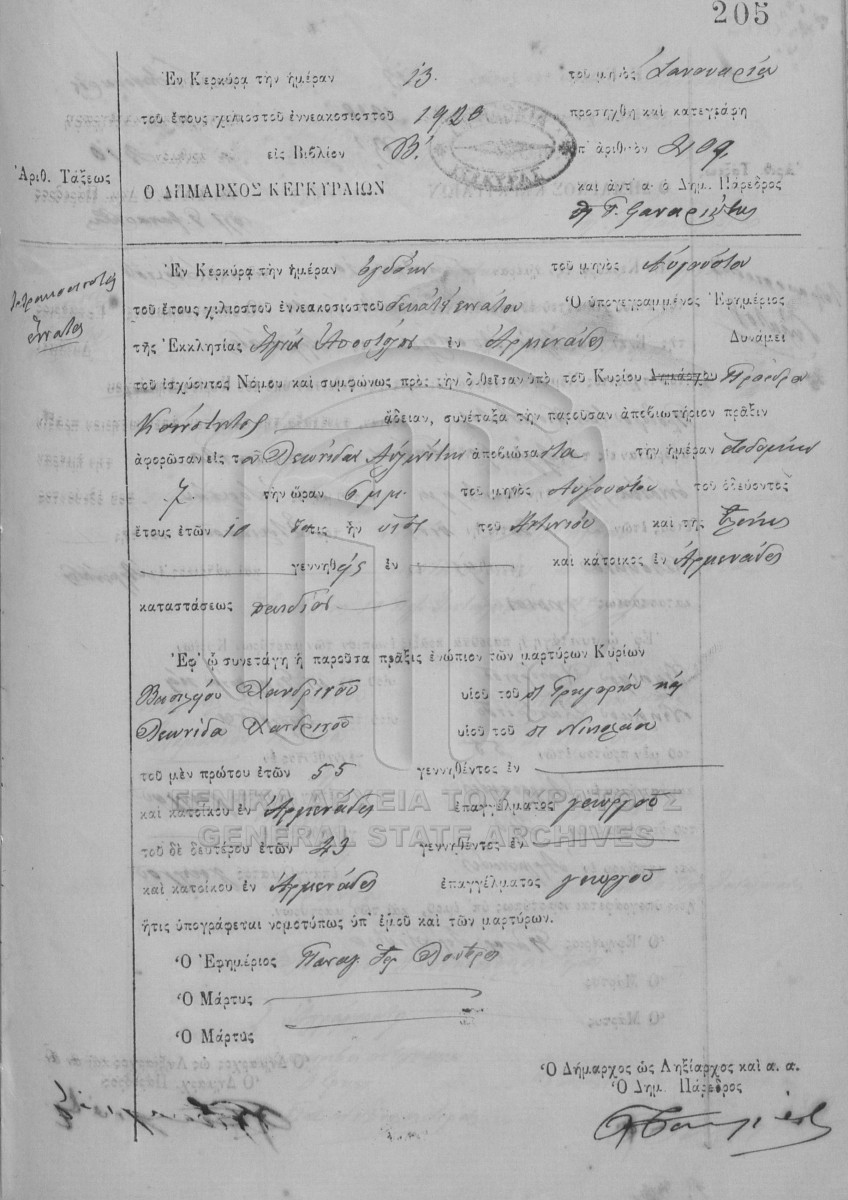 205
Ἐν Κερκύρᾳ τὴν ἡμέραν 13 τοῦ μηνὸς Ἰανουαρίου
τοῦ ἔτους χιλιοστοῦ ἐννεακοσιοστοῦ 1920 προσήχθη καὶ κατεγράφη
εἰς Βιβλίον Β! ὑπ' ἀριθμὸν 209
Ἀριθ. Τάξεως
Ο ΔΗΜΑΡΧΟΣ ΚΕΡΚΥΡΑΙΩΝ καὶ ἀντ' α. ὁ Δημ. Πάρεδρος
Ἐν Κερκύρᾳ τὴν ἡμέραν ὀγδόην τοῦ μηνὸς Αὐγούστου
ἔννατος
τοῦ ἔτους χιλιοστοῦ ἐννεακοσιοστοῦ δεκάτου ἐννάτου Ὁ ὑπογεγραμμένος Ἐφημέριος
τῆς Ἐκκλησίας Ἁγίων Ἀποστόλων ἐν Ἀρμενάδες Δυνάμει
τοῦ ἰσχύοντος Νόμου καὶ συμφώνως πρὸς τὴν δοθεῖσαν ὑπὸ τοῦ Κυρίου Δημάρχου Προέδρου
Κοινότητος ἄδειαν, συνέταξα τὴν παροῦσαν ἀποβιωτήριον πρᾶξιν
ἀφορῶσαν εἰς τὸν Λεωνίδαν ἀποβιώσαντα τὴν ἡμέραν ἑβδόμην
7 τὴν ὥραν 6 μ.μ. τοῦ μηνὸς Αὐγούστου τοῦ ὁδεύοντος
ἔτους ἐτῶν 10 ὅστις ἦν υἱὸς τοῦ Ἀντωνίου καὶ τῆς Ἑλένης
γεννηθεὶς ἐν καὶ κάτοικος ἐν Ἀρμενάδες
καταστάσεως παιδίον
Ἐφ' ᾧ συνετάγη ἡ παροῦσα πρᾶξις ἐνώπιον τῶν μαρτύρων Κυρίων
Βασιλείου Χανδρινοῦ υἱοῦ τοῦ π Γρηγορίου καὶ
Λεωνίδα Χανδρινοῦ υἱοῦ τοῦ π Νικολάου
τοῦ μὲν πρώτου ἐτῶν 55 γεννηθέντος ἐν
καὶ κατοίκου ἐν Ἀρμενάδες ἐπαγγέλματος γεωργοῦ
ΓΕΝΙΚΑ ΑΡΧΕΙΑ ΤΟΥ ΚΡΑΤΟΥΣ
GENERAL STATE ARCHIVES
τοῦ δὲ δευτέρου ἐτῶν 43 γεννηθέντος ἐν
καὶ κατοίκου ἐν Ἀρμενάδες ἐπαγγέλματος γεωργοῦ
ἥτις ὑπογράφεται νομοτύπως ὑπ' ἐμοῦ καὶ τῶν μαρτύρων.
Ὁ Ἐφημέριος
Ὁ Μάρτυς
Ὁ Μάρτυς
Ὁ Δήμαρχος ὡς Ληξίαρχος καὶ α. α.
Ὁ Δημ. Πάρεδρος